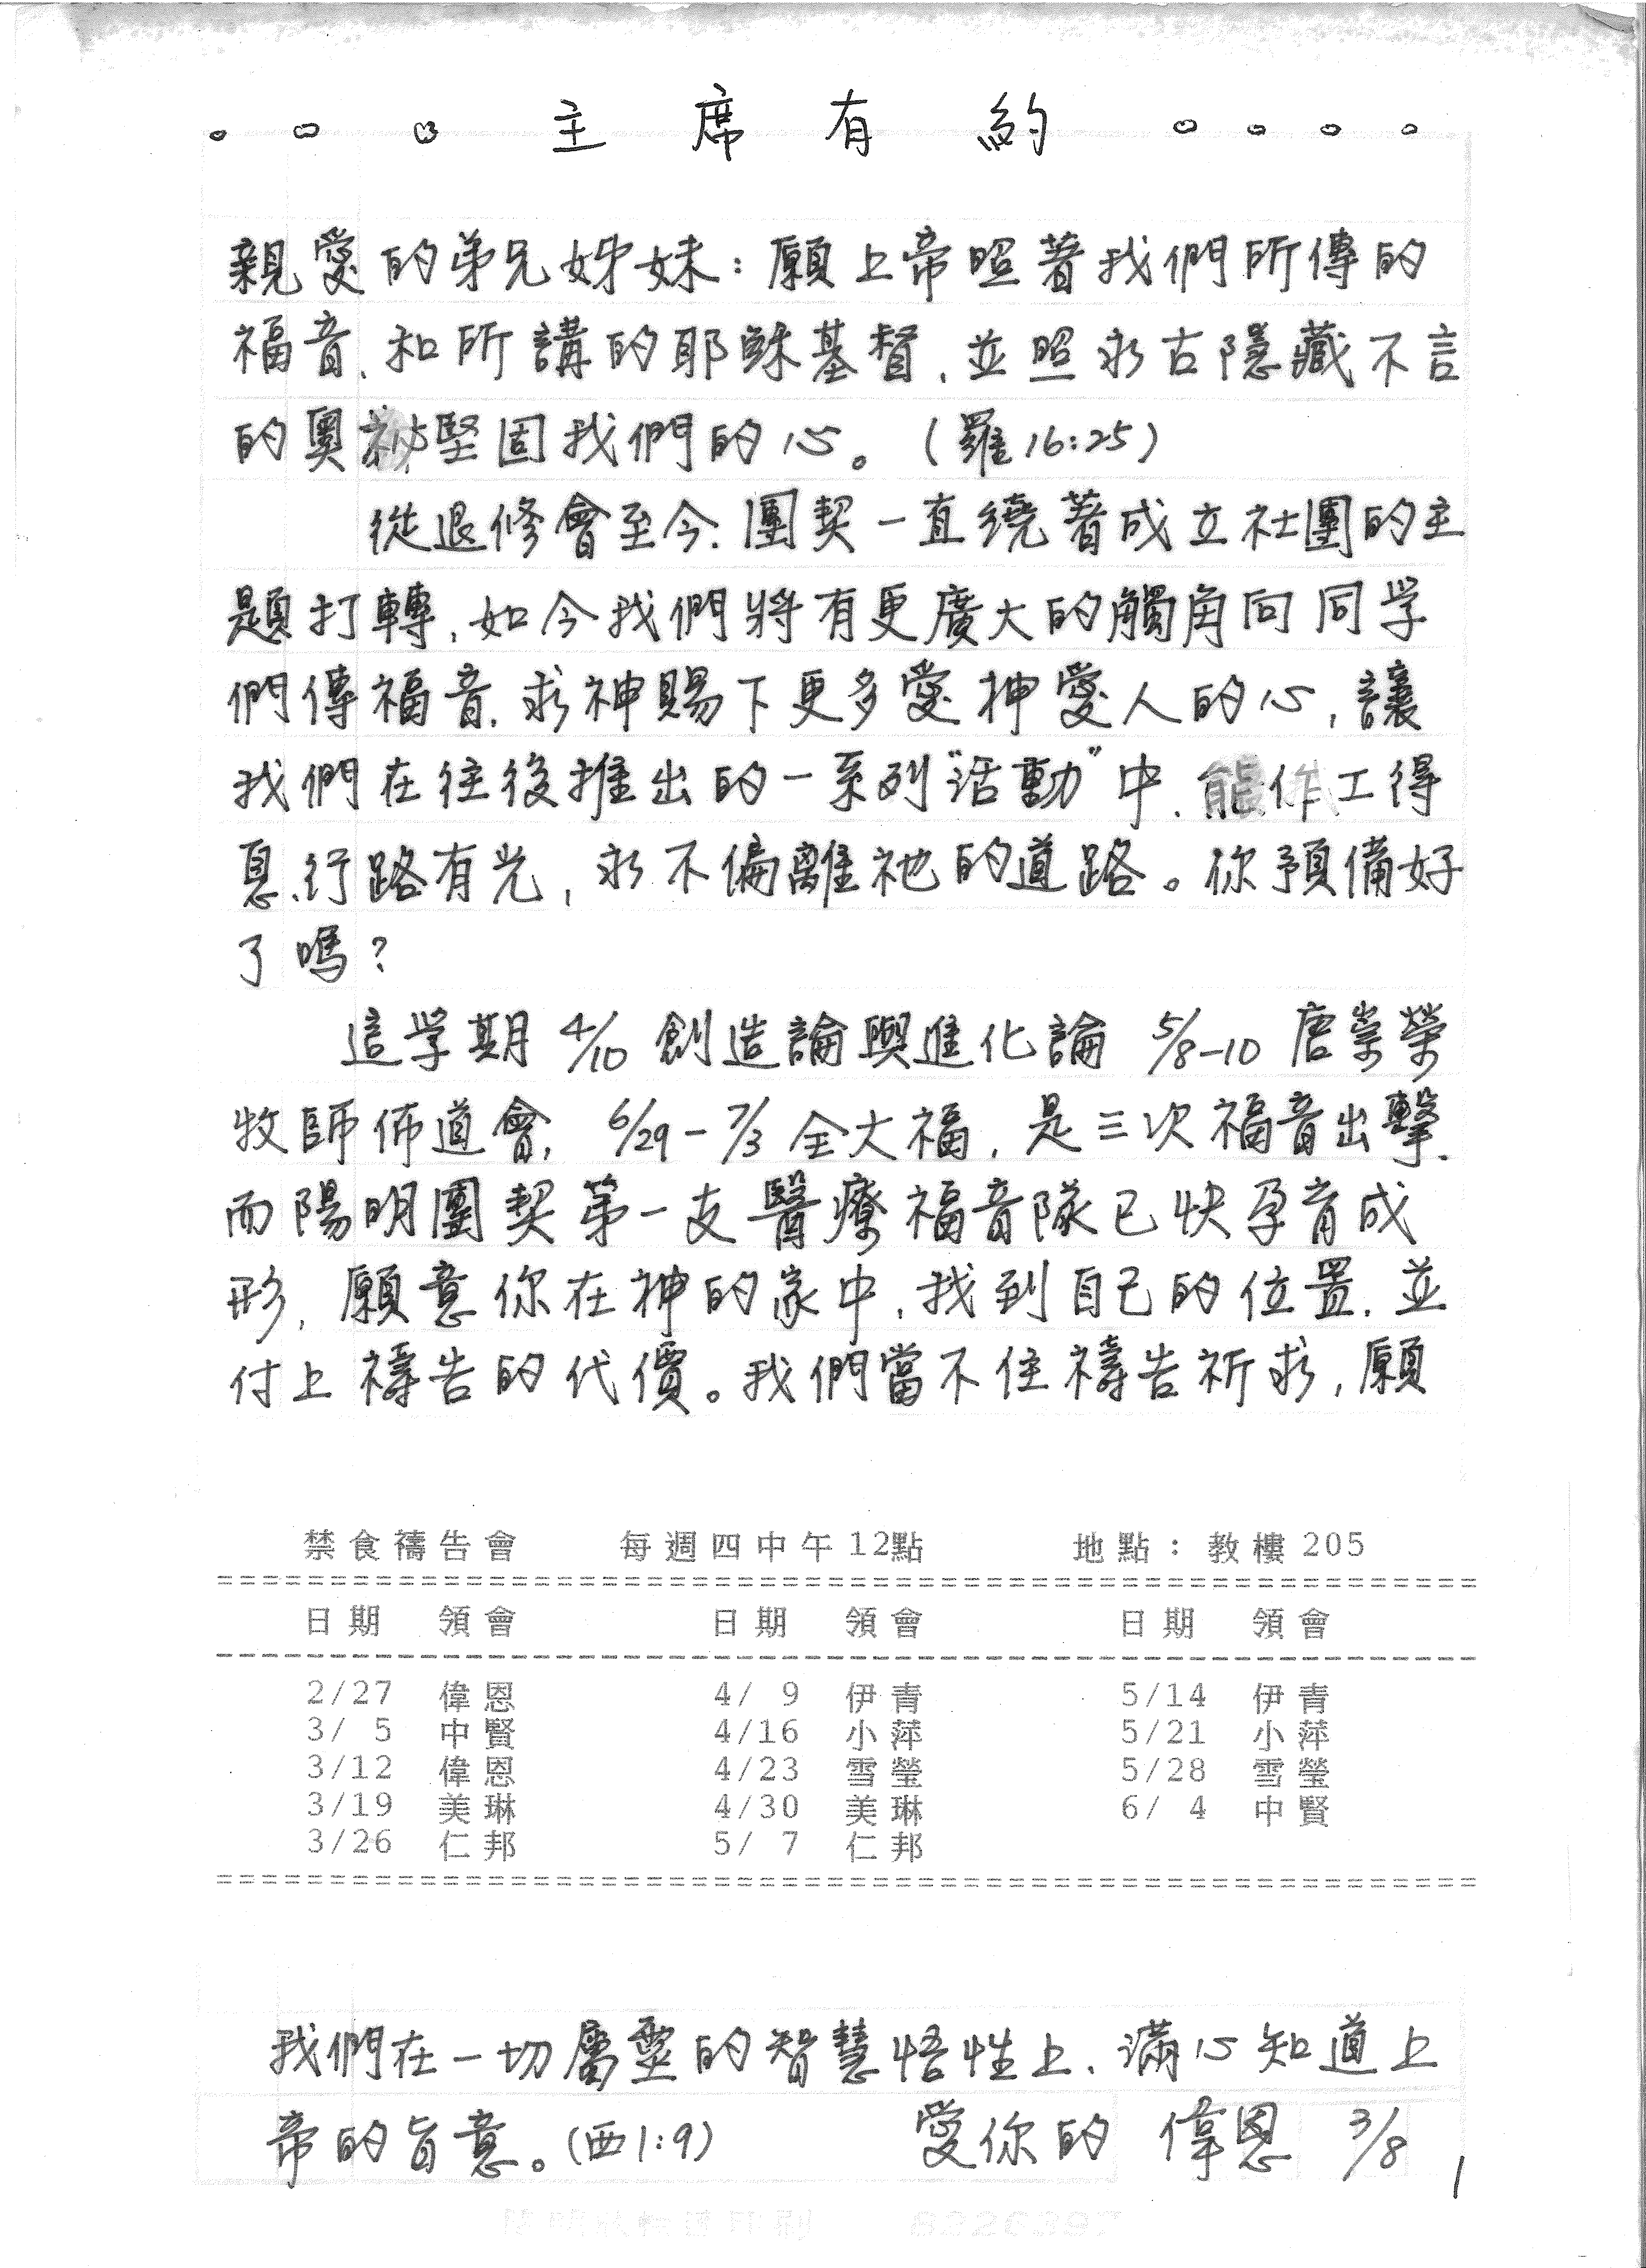 。。。主席有約。。。。
親愛的弟兄姊妹：願上帝照著我們所傳的
福音、和所講的耶穌基督，並照永古隱藏不言
的奧祕堅固我們的心。（羅16:25）
從退修會至今，團契一直繞著成立社團的主
題打轉，如今我們將有更廣大的觸角向同學
們傳福音，求神賜下更多愛神愛人的心，讓
我們在往後推出的一系列“活動”中，能作工得
息、行路有光，永不偏離祂的道路。你預備好
了嗎？
這學期 4/10 創造論與進化論 5/8-10 唐崇榮
牧師佈道會， 6/29-7/3 全大福，是三次福音出擊．
而陽明團契第一支醫療福音隊已快孕育成
形，願意你在神的家中，找到自己的位置，並
付上禱告的代價。我們當不住禱告祈求，願
禁食禱告會 每週四中午12點 地點：教樓205
日期 領會 日期 領會 日期 領會
2/27 偉恩 4/ 9 伊青 5/14 伊青
3/ 5 中賢 4/16 小萍 5/21 小萍
3/12 偉恩 4/23 雪瑩 5/28 雪瑩
3/19 美琳 4/30 美琳 6/ 4 中賢
3/26 仁邦 5/ 7 仁邦
我們在一切屬靈的智慧悟性上，滿心知道上
帝的旨意。(西1:9) 愛你的 偉恩 3/8
1
8226397